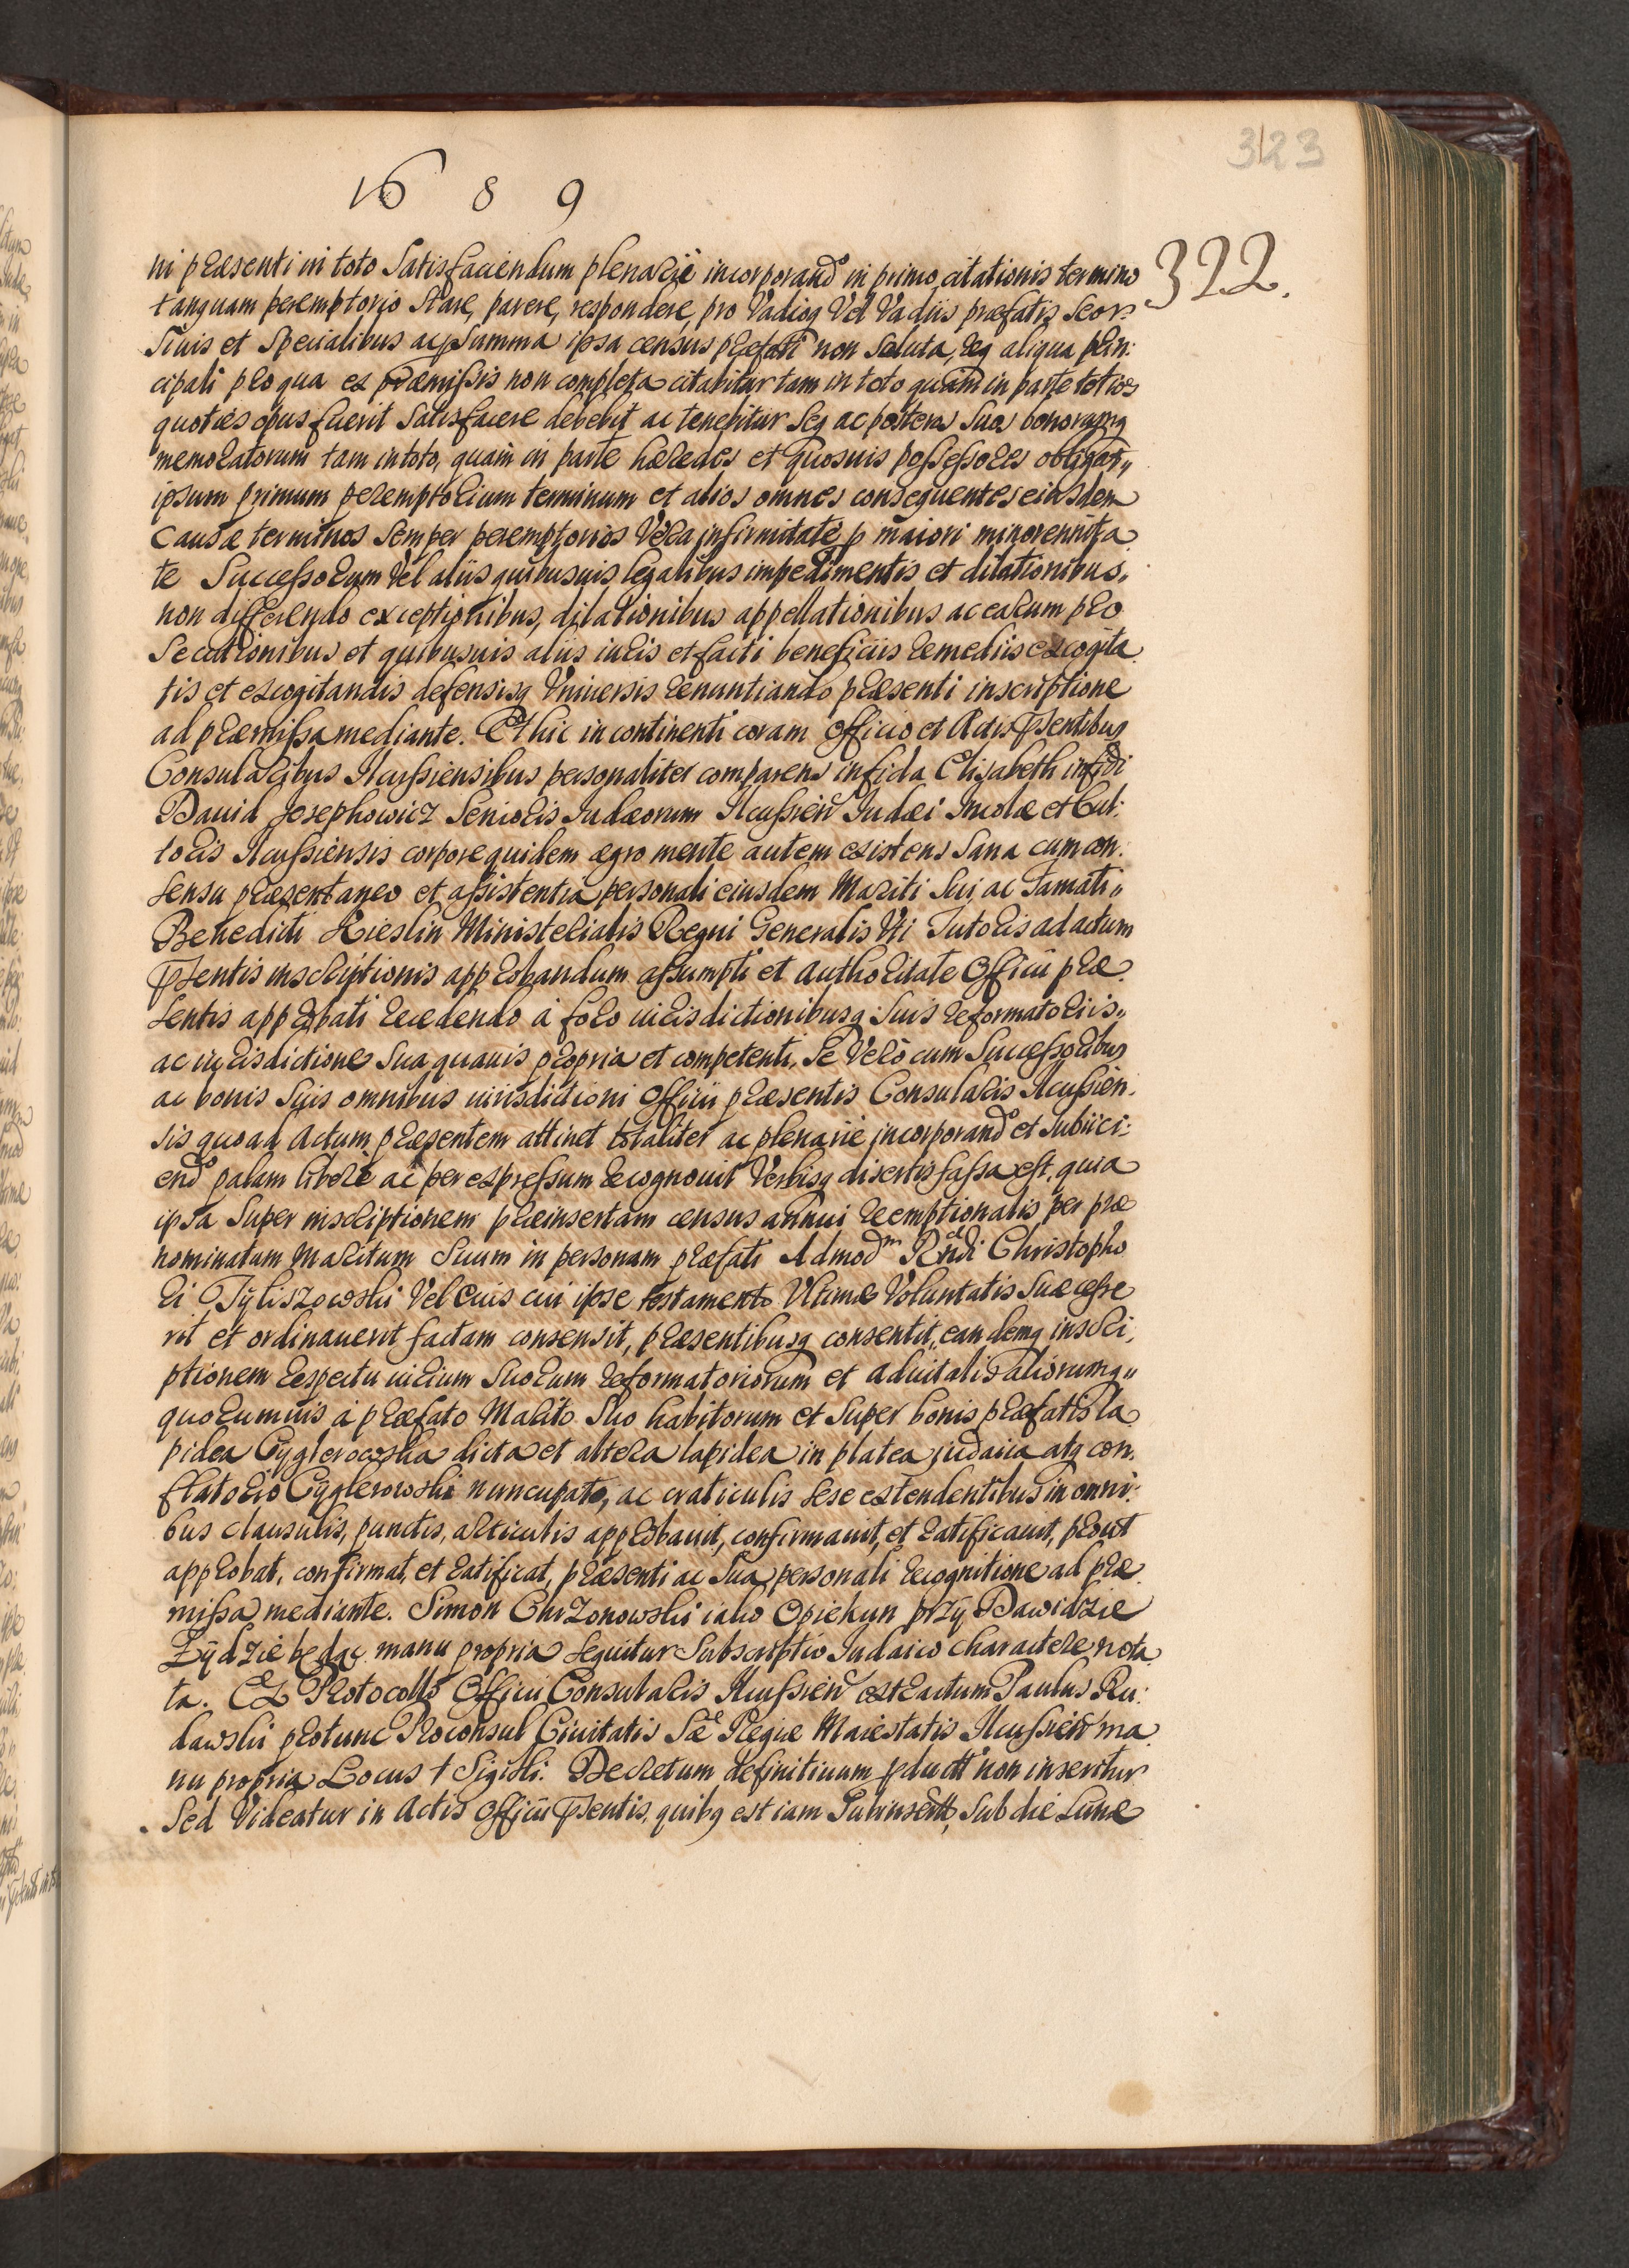 323
1689
322.
ni præsenti in toto Satisfaciendum plenarie incorporando in primo citationis termino
tanquam peremptorio Stare, parere, respondere, pro Vadioq Vel Vadiis præfatis Seor:
Siuis et Specialibus acp Summa ipsa census præfati non Soluta, Req aliqua prin:
cipali pro qua ex præmissis non completa citabitur tam in toto quam in parte toties
quoties opus fuerit Satisfacere debebit ac tenebitur Seq ac posteros Suos bonorumq
memoratorum tam in toto, quam in parte hæredes et quosuis possessores obligat„
ipsum primum peremptorium terminum et alios omnes consequentes eiusdem
Causæ terminos Semper peremptorios Vera infirmitate p maiori minorennita
te Successorum Vel aliis quibusuis legalibus impedimentis et dilationibus,
non differendo exceptionibus, dilationibus appellationibus ac earum pro
Secutionibus et quibusuis aliis iuris et facti beneficiis remediis excogita
tis et excogitandis defensisq Vniuersis renuntiando præsenti inscriptione
ad præmissa mediante. Et hic in continenti coram Officio et Actis psentibus
Consularibus Ilcussiensibus personaliter comparens infida Elisabeth infidi
Dauid Josephowicz Senioris Judæorum Ilcussien Judæi Incolæ et Cul:
toris Ilcussiensis corpore quidem ægro mente autem existens Sana cum con:
sensu præsentaneo et assistentia personali eiusdem Mariti Sui ac Famati„
Benedicti Kieslin Ministerialis Regni Generalis Vti Tutoris ad actum
psentis inscriptionis approbandum assumpti et authoritate Officii præ
sentis approbati recedendo à foro iurisdictionibusq Suis reformatoriis„
ac iurisdictione Sua quauis propria et competenti, Se Verò cum Successoribus
ac bonis Suis omnibus iurisdictioni Officii præsentis Consularis Ilcussien:
sis quoad Actum præsentem attinet totaliter ac plenarie incorporando et Subiici:
endo palam liberè ac per expressum recognouit Verbisq disertis fassa est, quia
ipsa Super inscriptionem præinsertam census annui reemptionalis per præ
nominatum Maritum Suum in personam præfati Admodm Rndi Christopho
ri Tyliszowski Vel Cuius cui ipse testamento Vltimæ Voluntatis Suæ cesse
rit et ordinauerit factam consensit, præsentibusq consentit, eandemq inscri:
ptionem respectu iurium Suorum reformatoriorum et aduitalis aliorumq„
quorumuis à præfato Marito Suo habitorum et Super bonis præfatis la
pidea Cyglerowska dicta et altera lapidea in platea judaica atq con:
flatorio Cyglerowski nuncupato, ac craticulis Sese extendentibus in omni:
bus clausulis, punctis, articulis approbauit, confirmauit, et ratificauit, prout
approbat, confirmat, et ratificat, præsenti ac Sua personali recognitione ad præ
missa mediante. Simon Chrzonowski iako Opiekun przy Dawidzie
Zydzie bedąc manu propria Sequitur Subscriptio Judaico charactere nota
ta. Ex Protocollo Officii Consularis Ilcussien extractum Paulus Ru:
dawski protunc Proconsul Ciuitatis Sæ Regiæ Maiestatis Ilcussien ma
nu propria Locus + Sigilli. Decretum definitiuum non inseritur
Sed Videatur in Actis Officii psentis, quibq est iam Subinsertt, Sub die Lunæ